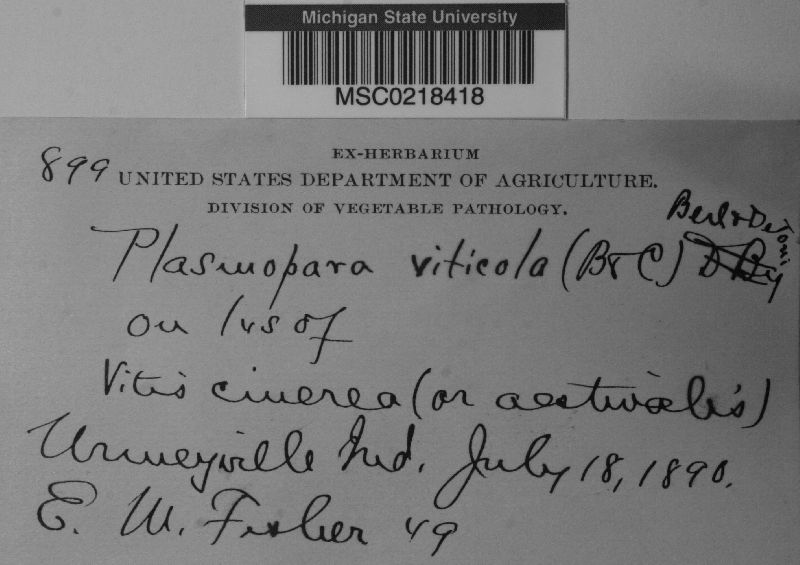 Michigan State University
MSC0218418
EX-HERBARIUM
899 UNITED STATES DEPARTMENT OF AGRICULTURE.
DIVISION OF VEGETABLE PATHOLOGY.
Berl & De Toni
Plasmopara viticola (B & C) D By
on lvs of
Vitis cinerea (or aestivalis)
Urmeyville Ind. July 18, 1890.
E. M. Fisher 49